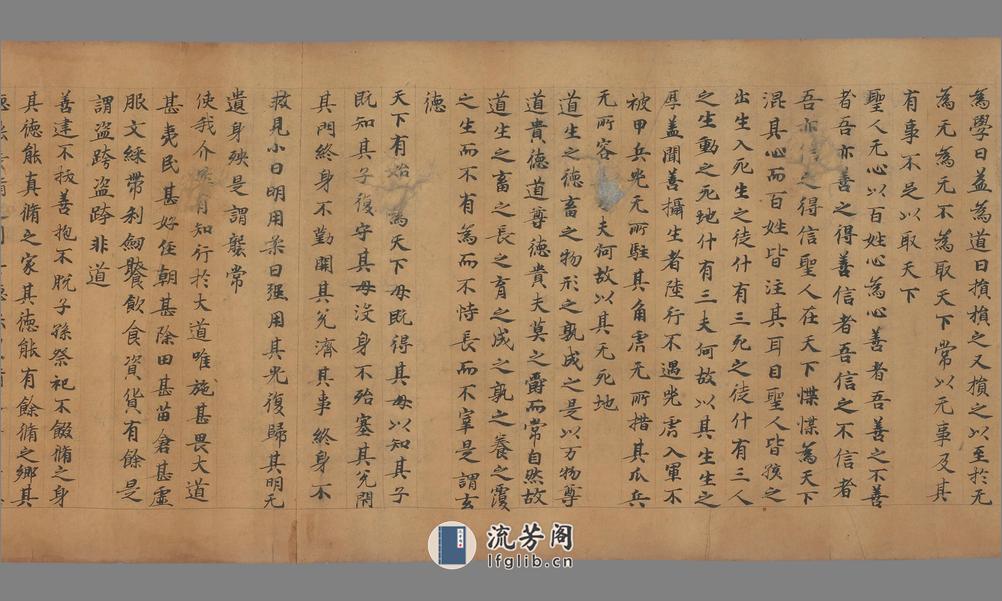 為學日益為道日損損之又損之以至於无
為无為无不為取天下常以无事及其
有事不足以取天下
聖人无心以百姓心為心善者吾善之不善
者吾亦善之得善信者吾信之不信者
吾亦信之得信聖人在天下惵惵為天下
混其心而百姓皆注其耳目聖人皆孩之
出生入死生之徒什有三死之徒什有三人
之生動之死地什有三夫何故以其生生之
厚盖聞善攝生者陸行不遇兕虎入軍不
被甲兵兕无所駐其角虎无所措其爪兵
无所容 夫何故以其无死地
道生之德畜之物形之孰成之是以万物尊
道貴德道尊德貴夫莫之爵而常自然故
道生之畜之長之育之成之孰之養之覆
之生而不有為而不恃長而不宰是謂玄
德
天下有始 為天下母既得其母以知其子
既知其子復守其母没身不殆塞其兌閇
其門終身不勤開其兌濟其事終身不
救見小曰明用柔曰强用其光復歸其明无
遺身殃是謂襲常
使我介 有知行於大道唯施甚畏大道
甚夷民甚好俓朝甚除田甚苗倉甚虛
服文綵帶利劒饜飲食資貨有餘是
謂盜跨盜跨非道
善建不拔善抱不脫子孫祭祀不餟脩之身
其德能真脩之家其德能有餘脩之鄉其
流芳阁
lfglib.cn